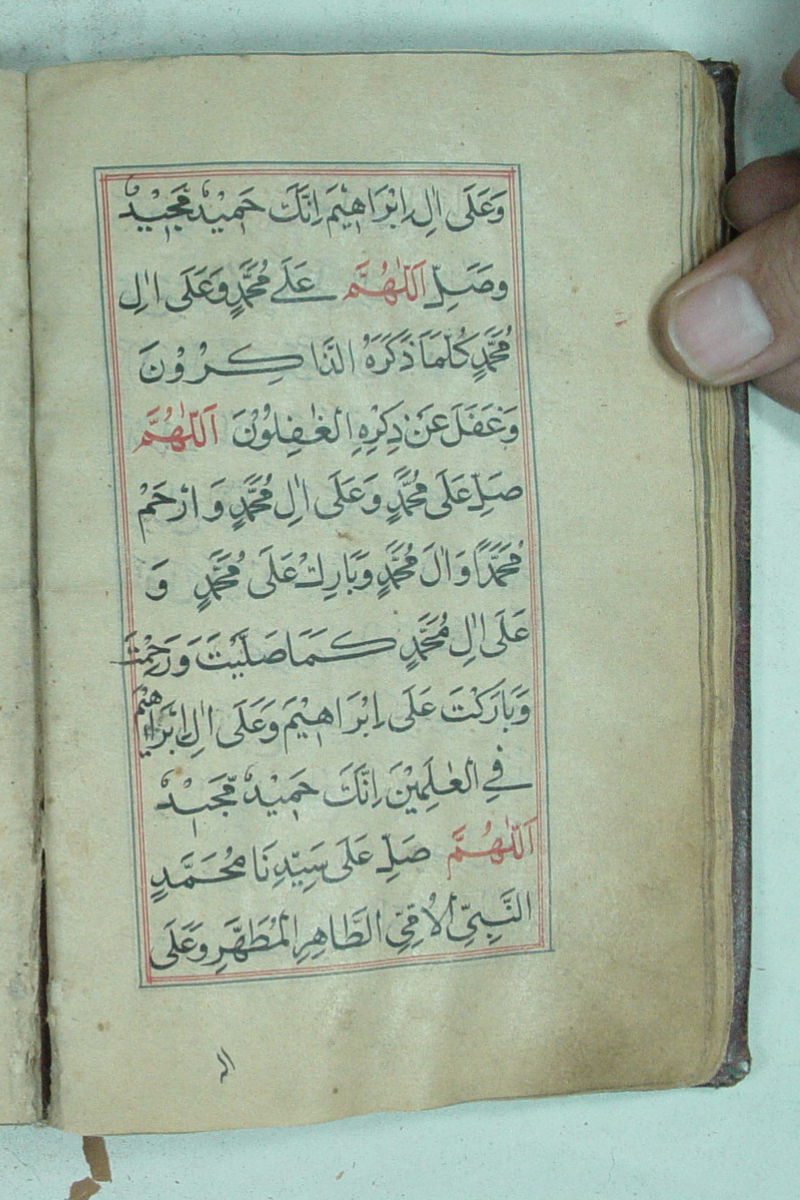 وَعَلَى اٰلِ اِبْرَاهِيْمَ اِنَّكَ حَمِيْدٌ مَّجِيْدٌ
وصَلِّ اَللّٰهُمَّ عَلٰے مُحَمَّدٍ وَعَلَى اٰلِ
مُحَمَّدٍ كُلَّمَا ذَكَرَهُ الذَّاكِرُوْنَ
وَغَفَلَ عَنْ ذِكْرِهِ الْغٰفِلُوْنَ اَللّٰهُمَّ
صَلِّ عَلٰى مُحَمَّدٍ وَعَلَى اٰلِ مُحَمَّدٍ وَارْحَمْ
مُحَمَّدًا وَاٰلَ مُحَمَّدٍ وَبَارِكْ عَلَى مُحَمَّدٍ وَ
عَلَى اٰلِ مُحَمَّدٍ كَمَا صَلَّيْتَ وَرَحِمْتَ
وَبَارَكْتَ عَلَى اِبْرَاهِيْمَ وَعَلَى اٰلِ اِبْرَاهِيْمَ
فِے الْعٰلَمِيْنَ اِنَّكَ حَمِيْدٌ مَّجِيْدٌ
اَللّٰهُمَّ صَلِّ عَلَى سَيِّدِنَا مُحَمَّدٍ
النَّبِيِّ الْاُمِّيِّ الطَّاهِرِ الْمُطَهَّرِ وَعَلَى